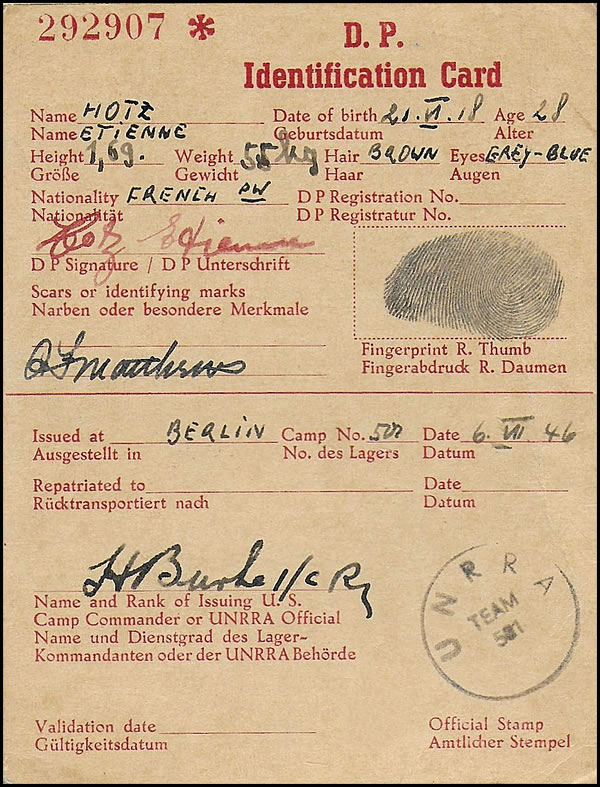 292907 *
D. P.
Identification Card
Name HOTZ Date of birth 21.VI.18 Age 28
Name ETIENNE Geburtsdatum Alter
Height 1,69. Weight 55 kg Hair BROWN Eyes GREY-BLUE
Größe Gewicht Haar Augen
Nationality FRENCH PW DP Registration No.
Nationalität DP Registratur No.
Hotz Etienne
DP Signature / DP Unterschrift
Scars or identifying marks
Narben oder besondere Merkmale
Matthews
Fingerprint R. Thumb
Fingerabdruck R. Daumen
Issued at BERLIN Camp No. Date 6. VII 46
Ausgestellt in No. des Lagers Datum
Repatriated to Date
Rücktransportiert nach Datum
H Burke
Name and Rank of Issuing U. S.
Camp Commander or UNRRA Official
Name und Dienstgrad des Lager-
Kommandanten oder der UNRRA Behörde
UNRRA
TEAM
Validation date Official Stamp
Gültigkeitsdatum Amtlicher Stempel